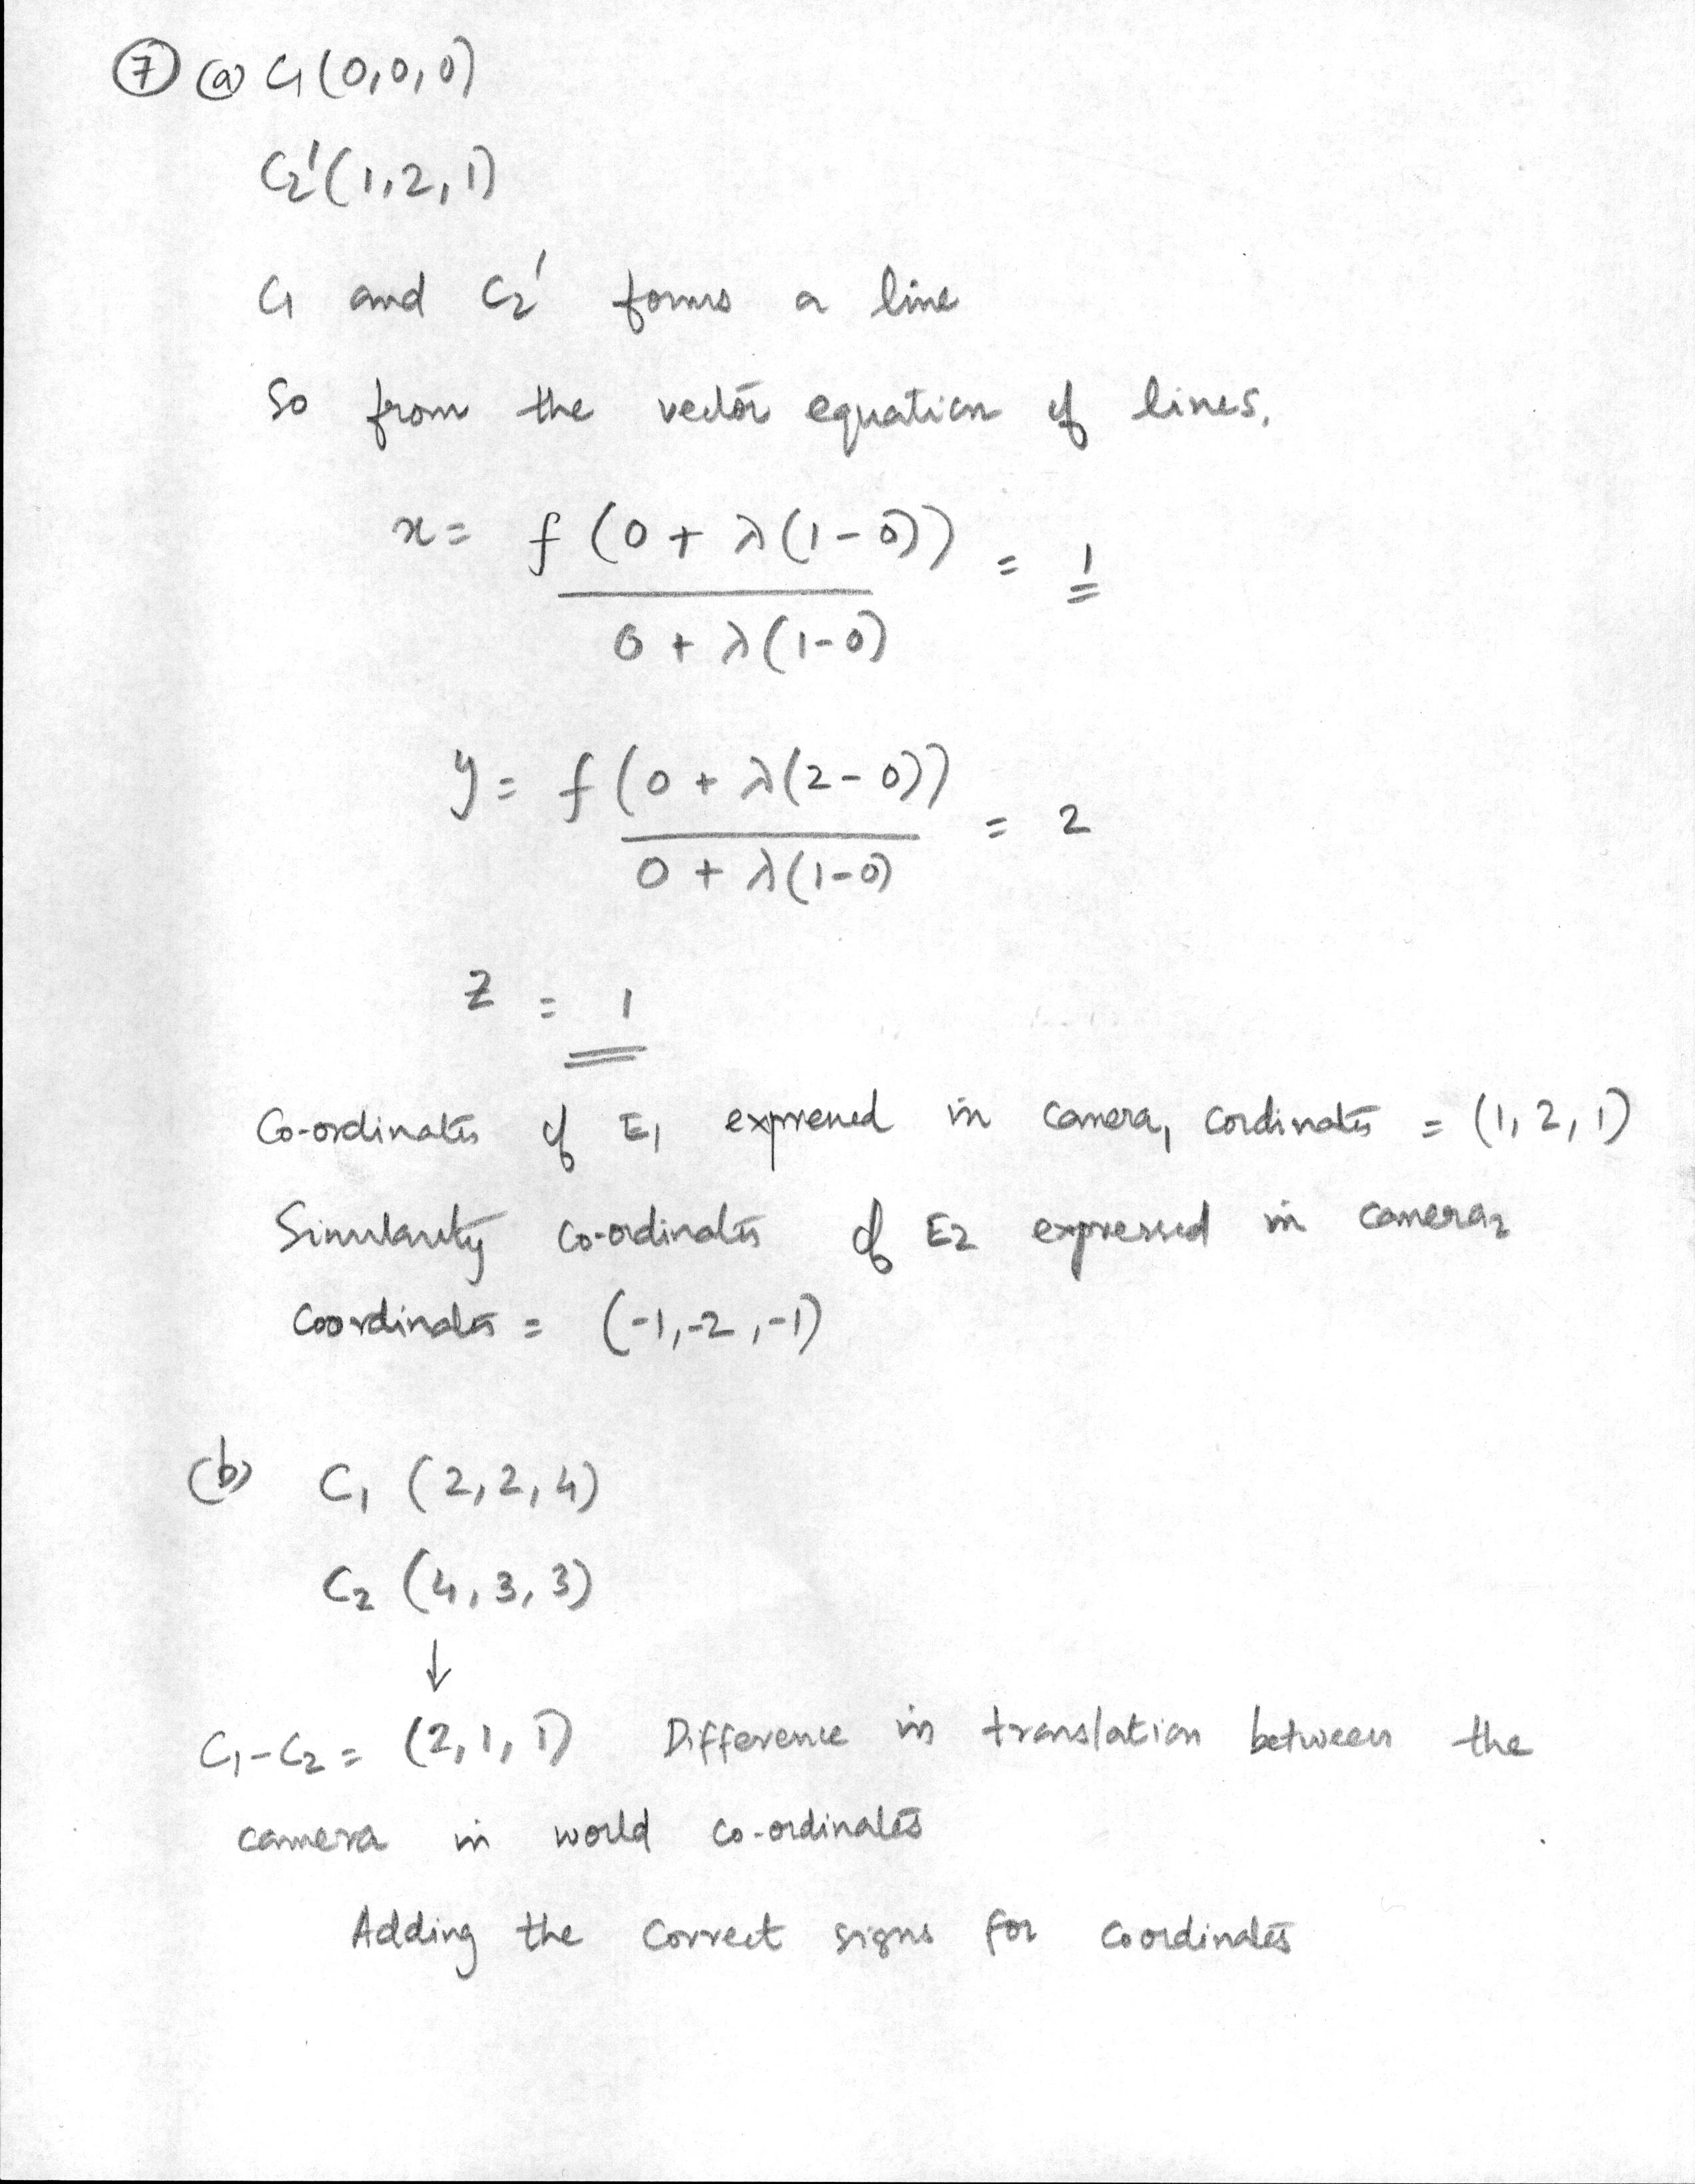 ⑦ ⓐ C₁ (0,0,0)
C₂' (1,2,1)
C₁ and C₂' forms a line
So from the vector equation of lines,
x = f (0 + λ(1-0)) / 0 + λ(1-0) = 1
y = f (0 + λ(2-0)) / 0 + λ(1-0) = 2
z = 1
Co-ordinates of E₁ expressed in camera₁ cordinates = (1, 2, 1)
Simularity co-ordinates of E2 expressed in camera₂
Coordinates = (-1,-2,-1)
(b) C₁ (2,2,4)
C₂ (4,3,3)
↓
C₁-C₂ = (2,1,1) Difference in translation between the
camera in world co-ordinates
Adding the correct signs for coordinates